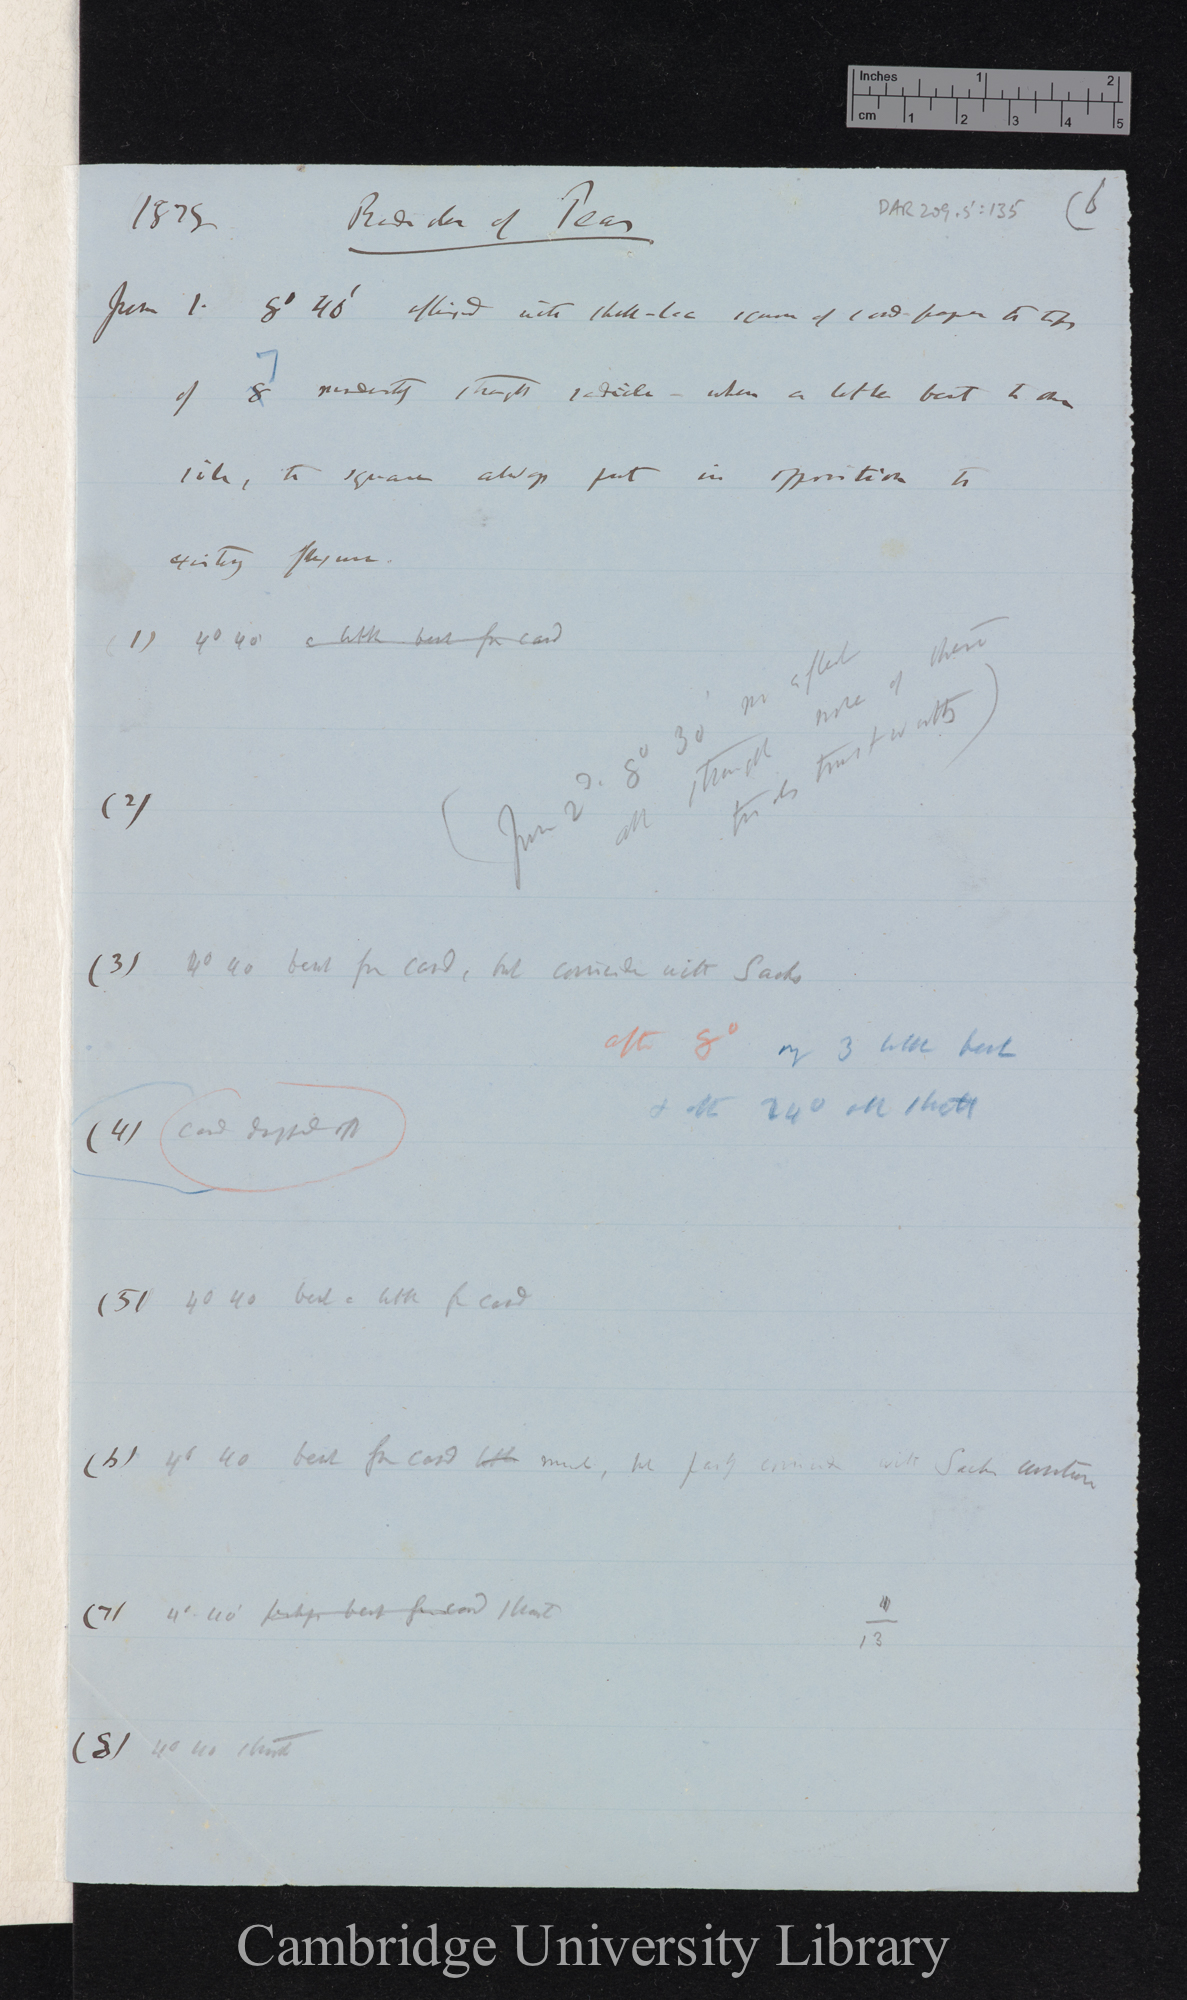 Inches 1 2
cm 1 2 3 4 5
1879 Radicles of Peas DAR 209.5:135 (6
June 1. 8° 40' affixed with shell-lac squares of card-paper to tips
of 8 7 moderately straight radicles - when a little bent to one
side, the square always put in opposition to
existing flexure.
(1) 4° 40' a little bent from card
(June 2d. 8° 30' no effect
all straight none of these
trials trustworthy)
(2)
(3) 4° 40 bent from card, but coincides with Sachs
after 8° only 3 little bent
& after 24° all
(4) card dropped off
(5) 4° 40 bent a little from card
(6) 4° 40 bent from card little much, but partly coincides with Sachs curvature
(7) 4° 40' perhaps bent from card straight
13
(8) 4° 40 straight
Cambridge University Library